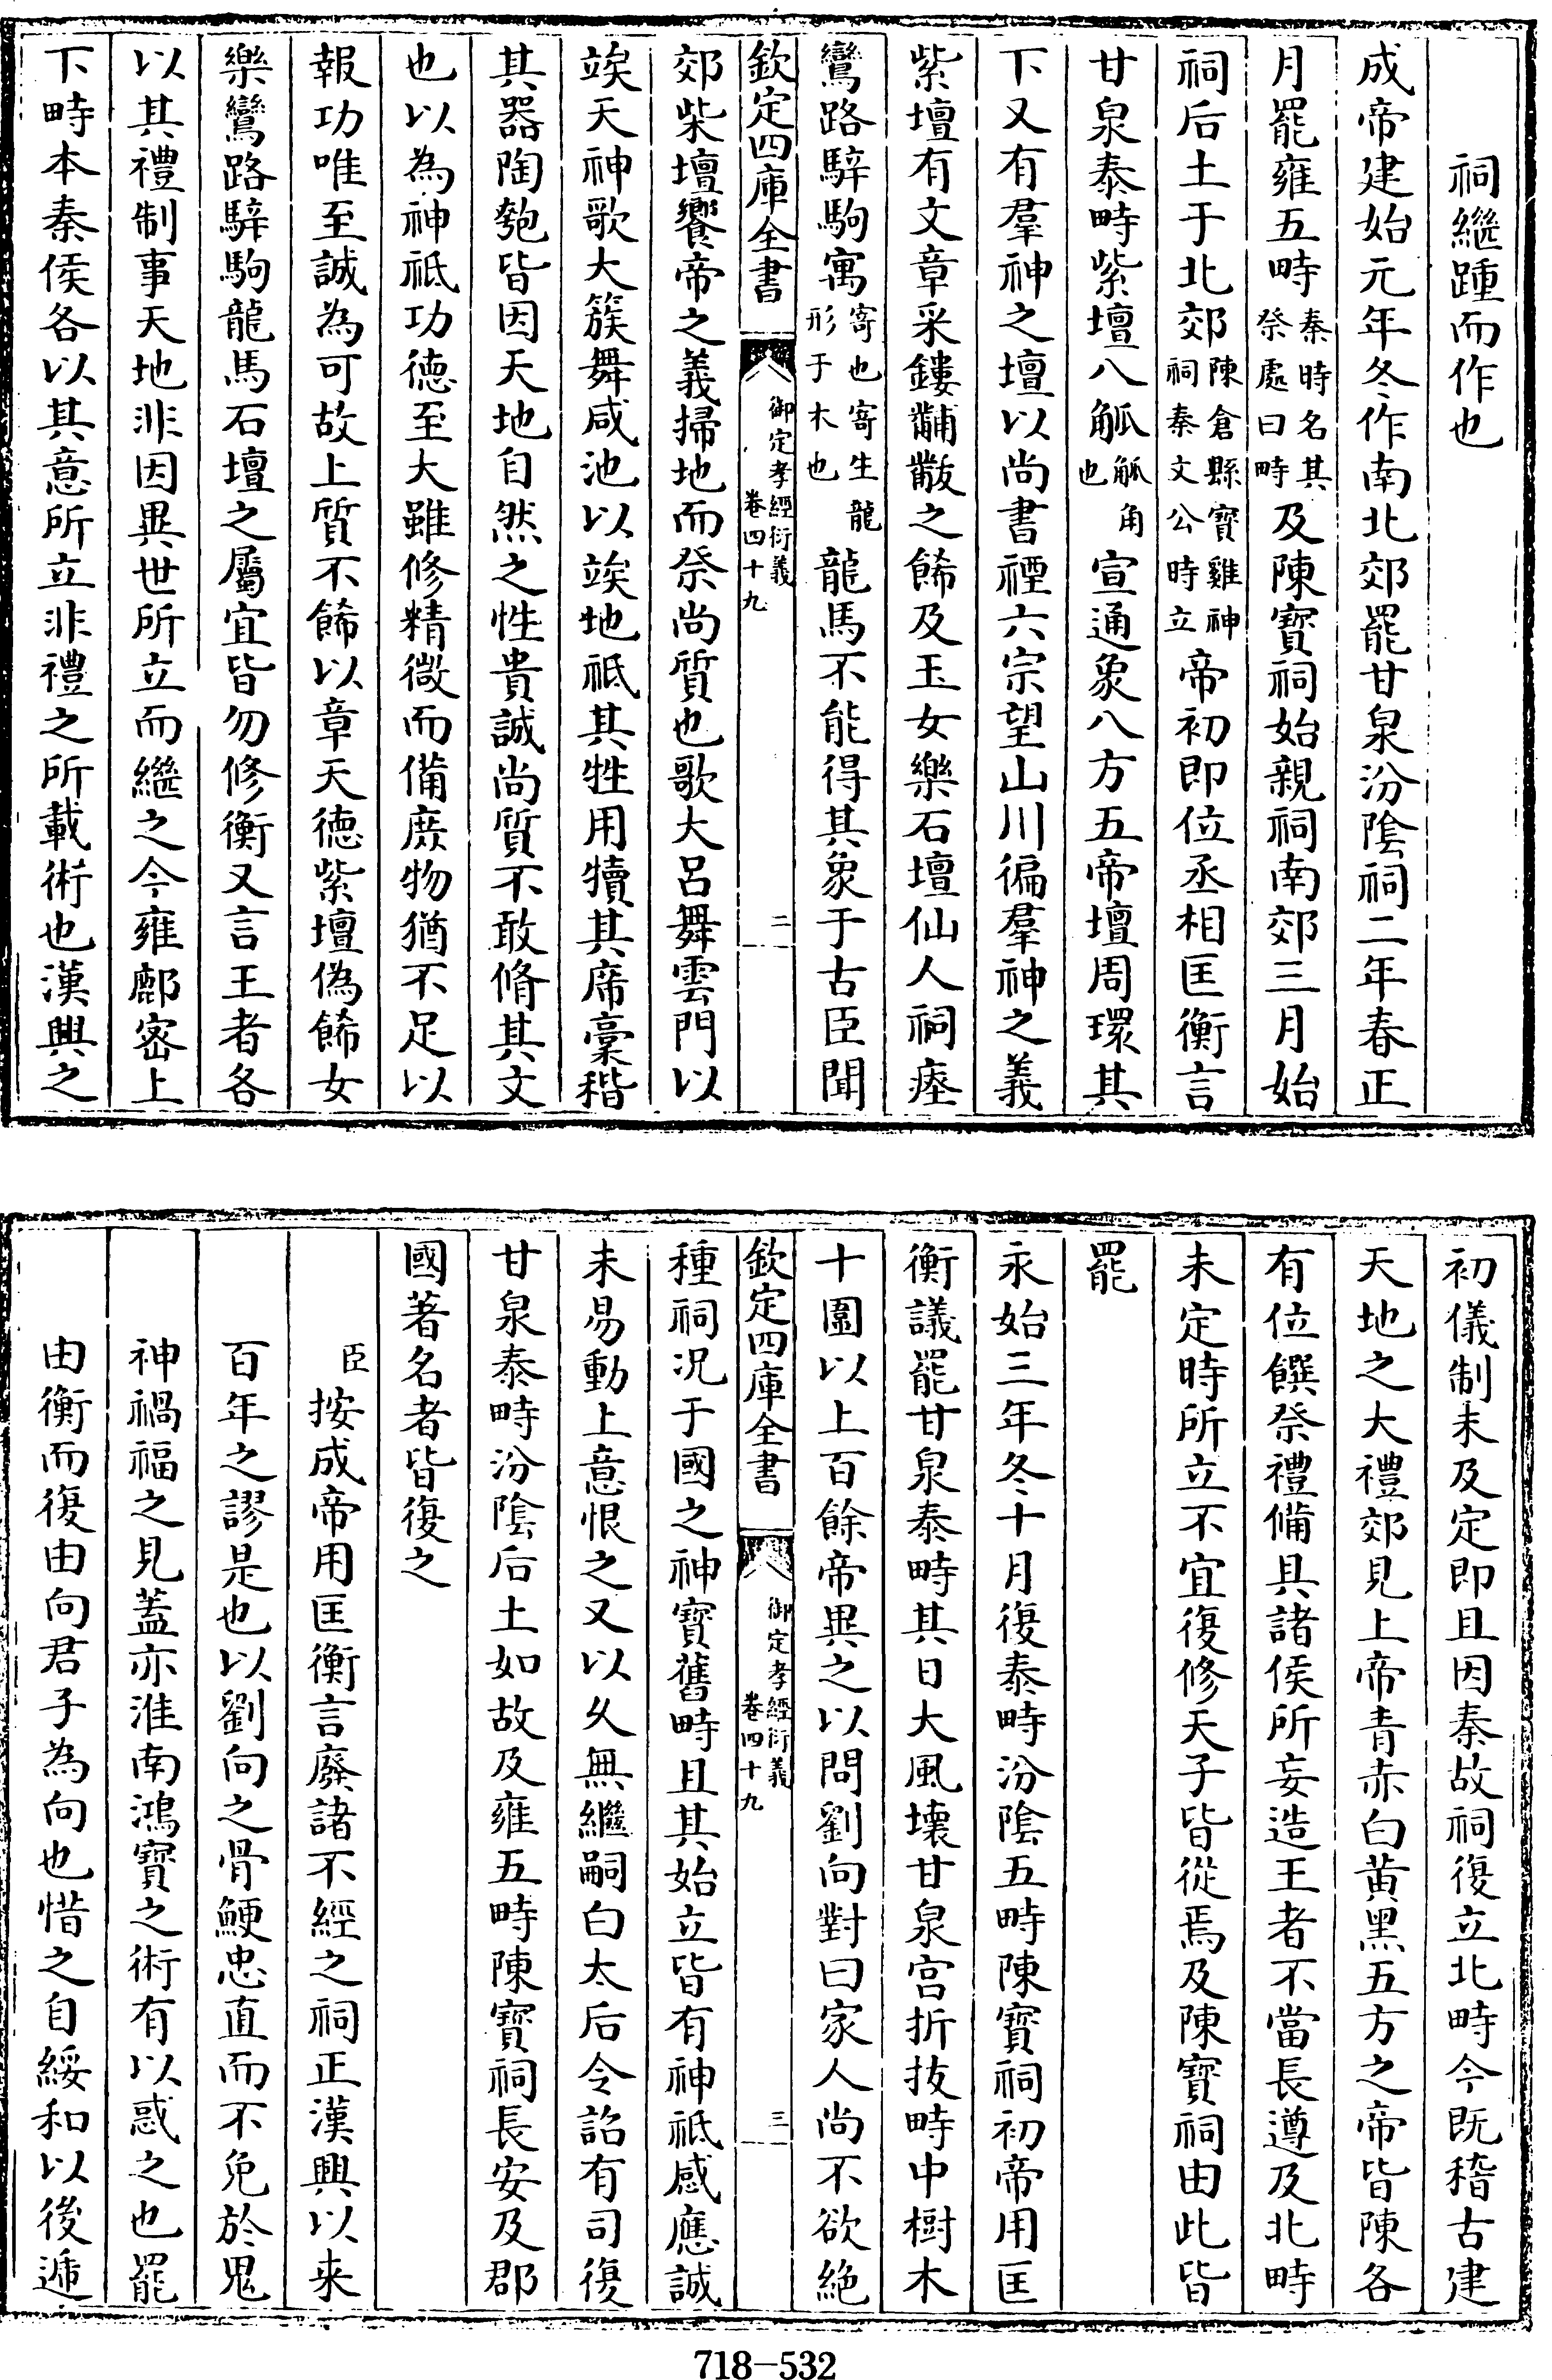 祠繼踵而作也
成帝建始元年冬作南北郊罷甘泉汾隂祠二年春正
月罷雍五畤秦時名其祭處曰畤及陳寶祠始親祠南郊三月始
祠后土于北郊陳倉縣寶雞神祠秦文公時立帝初即位丞相匡衡言
甘泉泰畤紫壇八觚觚角也宣通象八方五帝壇周環其
下又有羣神之壇以尚書禋六宗望山川徧羣神之義
紫壇有文章采鏤黼黻之飾及玉女樂石壇仙人祠瘞
鸞路騂駒寓寄也寄生龍形于木也龍馬不能得其象于古臣聞
欽定四庫全書
御定孝經衍義
卷四十九
二
郊柴壇饗帝之義掃地而祭尚質也歌大呂舞雲門以
竢天神歌大簇舞咸池以竢地祗其牲用犢其席稾稭
其器陶匏皆因天地自然之性貴誠尚質不敢脩其文
也以為神祗功德至大雖修精微而備庶物猶不足以
報功唯至誠為可故上質不飾以章天德紫壇偽飾女
樂鸞路騂駒龍馬石壇之屬宜皆勿修衡又言王者各
以其禮制事天地非因異世所立而繼之今雍鄜密上
下畤本秦侯各以其意所立非禮之所載術也漢興之
初儀制未及定即且因秦故祠復立北畤今既稽古建
天地之大禮郊見上帝青赤白黄黑五方之帝皆陳各
有位饌祭禮備具諸侯所妄造王者不當長遵及北畤
未定時所立不宜復修天子皆從焉及陳寶祠由此皆
罷
永始三年冬十月復泰畤汾隂五畤陳寶祠初帝用匡
衡議罷甘泉泰畤其日大風壞甘泉宮折拔畤中樹木
十圍以上百餘帝異之以問劉向對曰家人尚不欲絶
欽定四庫全書
御定孝經衍義
卷四十九
三
種祠况于國之神寶舊畤且其始立皆有神祗感應誠
未易動上意恨之又以久無繼嗣白太后令詔有司復
甘泉泰畤汾隂后土如故及雍五畤陳寶祠長安及郡
國著名者皆復之
臣按成帝用匡衡言廢諸不經之祠正漢興以来
百年之謬是也以劉向之骨鯁忠直而不免於鬼
神禍福之見葢亦淮南鴻寶之術有以惑之也罷
由衡而復由向君子為向也惜之自綏和以後遞
718-532